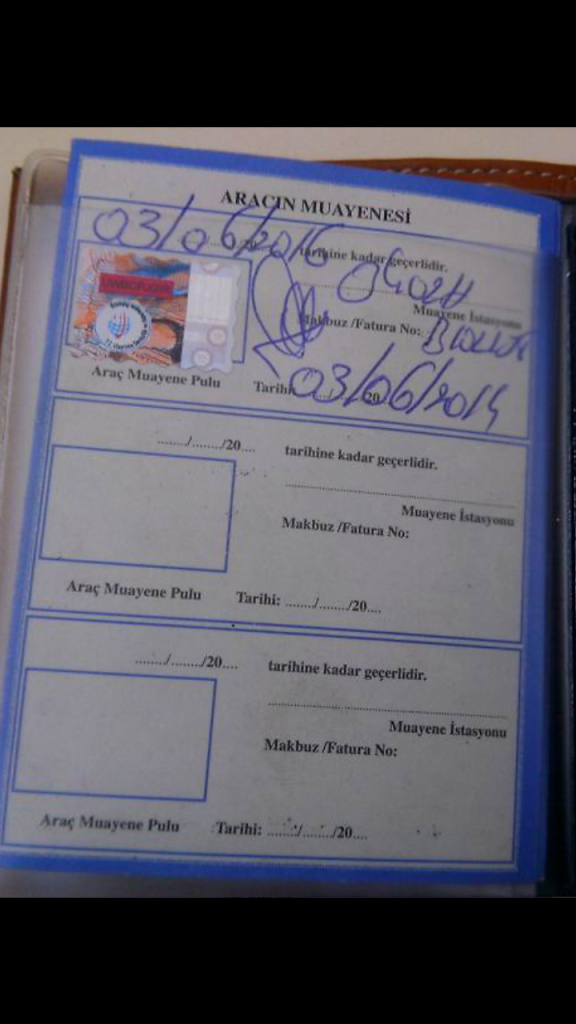 ARACIN MUAYENESİ
03/06/2016 tarihine kadar geçerlidir.
Muayene İstasyonu
Makbuz /Fatura No:
Araç Muayene Pulu Tarihi: 03/06/2014
......../......../20.... tarihine kadar geçerlidir.
Muayene İstasyonu
Makbuz /Fatura No:
Araç Muayene Pulu Tarihi: ......../......../20....
......../......../20.... tarihine kadar geçerlidir.
Muayene İstasyonu
Makbuz /Fatura No:
Araç Muayene Pulu Tarihi: ......../......../20....